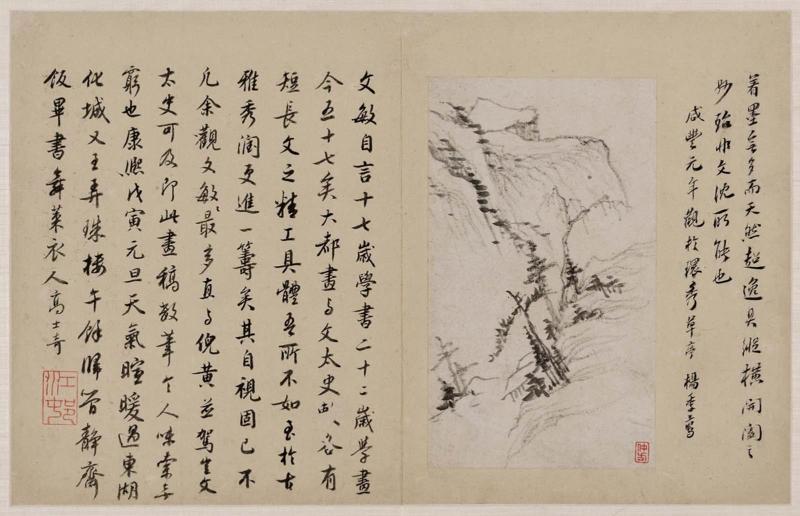 著墨無多而天然超逸具縱橫開闔之
妙殆非文沈所能也
咸豐元年觀於環秀草亭 楊季鸞
文敏自言十七歲學書二十二歲學畫
今五十七矣大都畫與文太史較各有
短長文之精工具體吾所不如至於古
雅秀潤更進一籌矣其自視固已不
凡余觀文敏最多直與倪黃並駕豈文
太史可及即此畫稿數筆令人味索無
窮也康熙戊寅元旦天氣暄暖過東湖
化城又王弄珠樓午餘歸簡靜齋
飯畢書 舞萊衣人高士奇
江邨